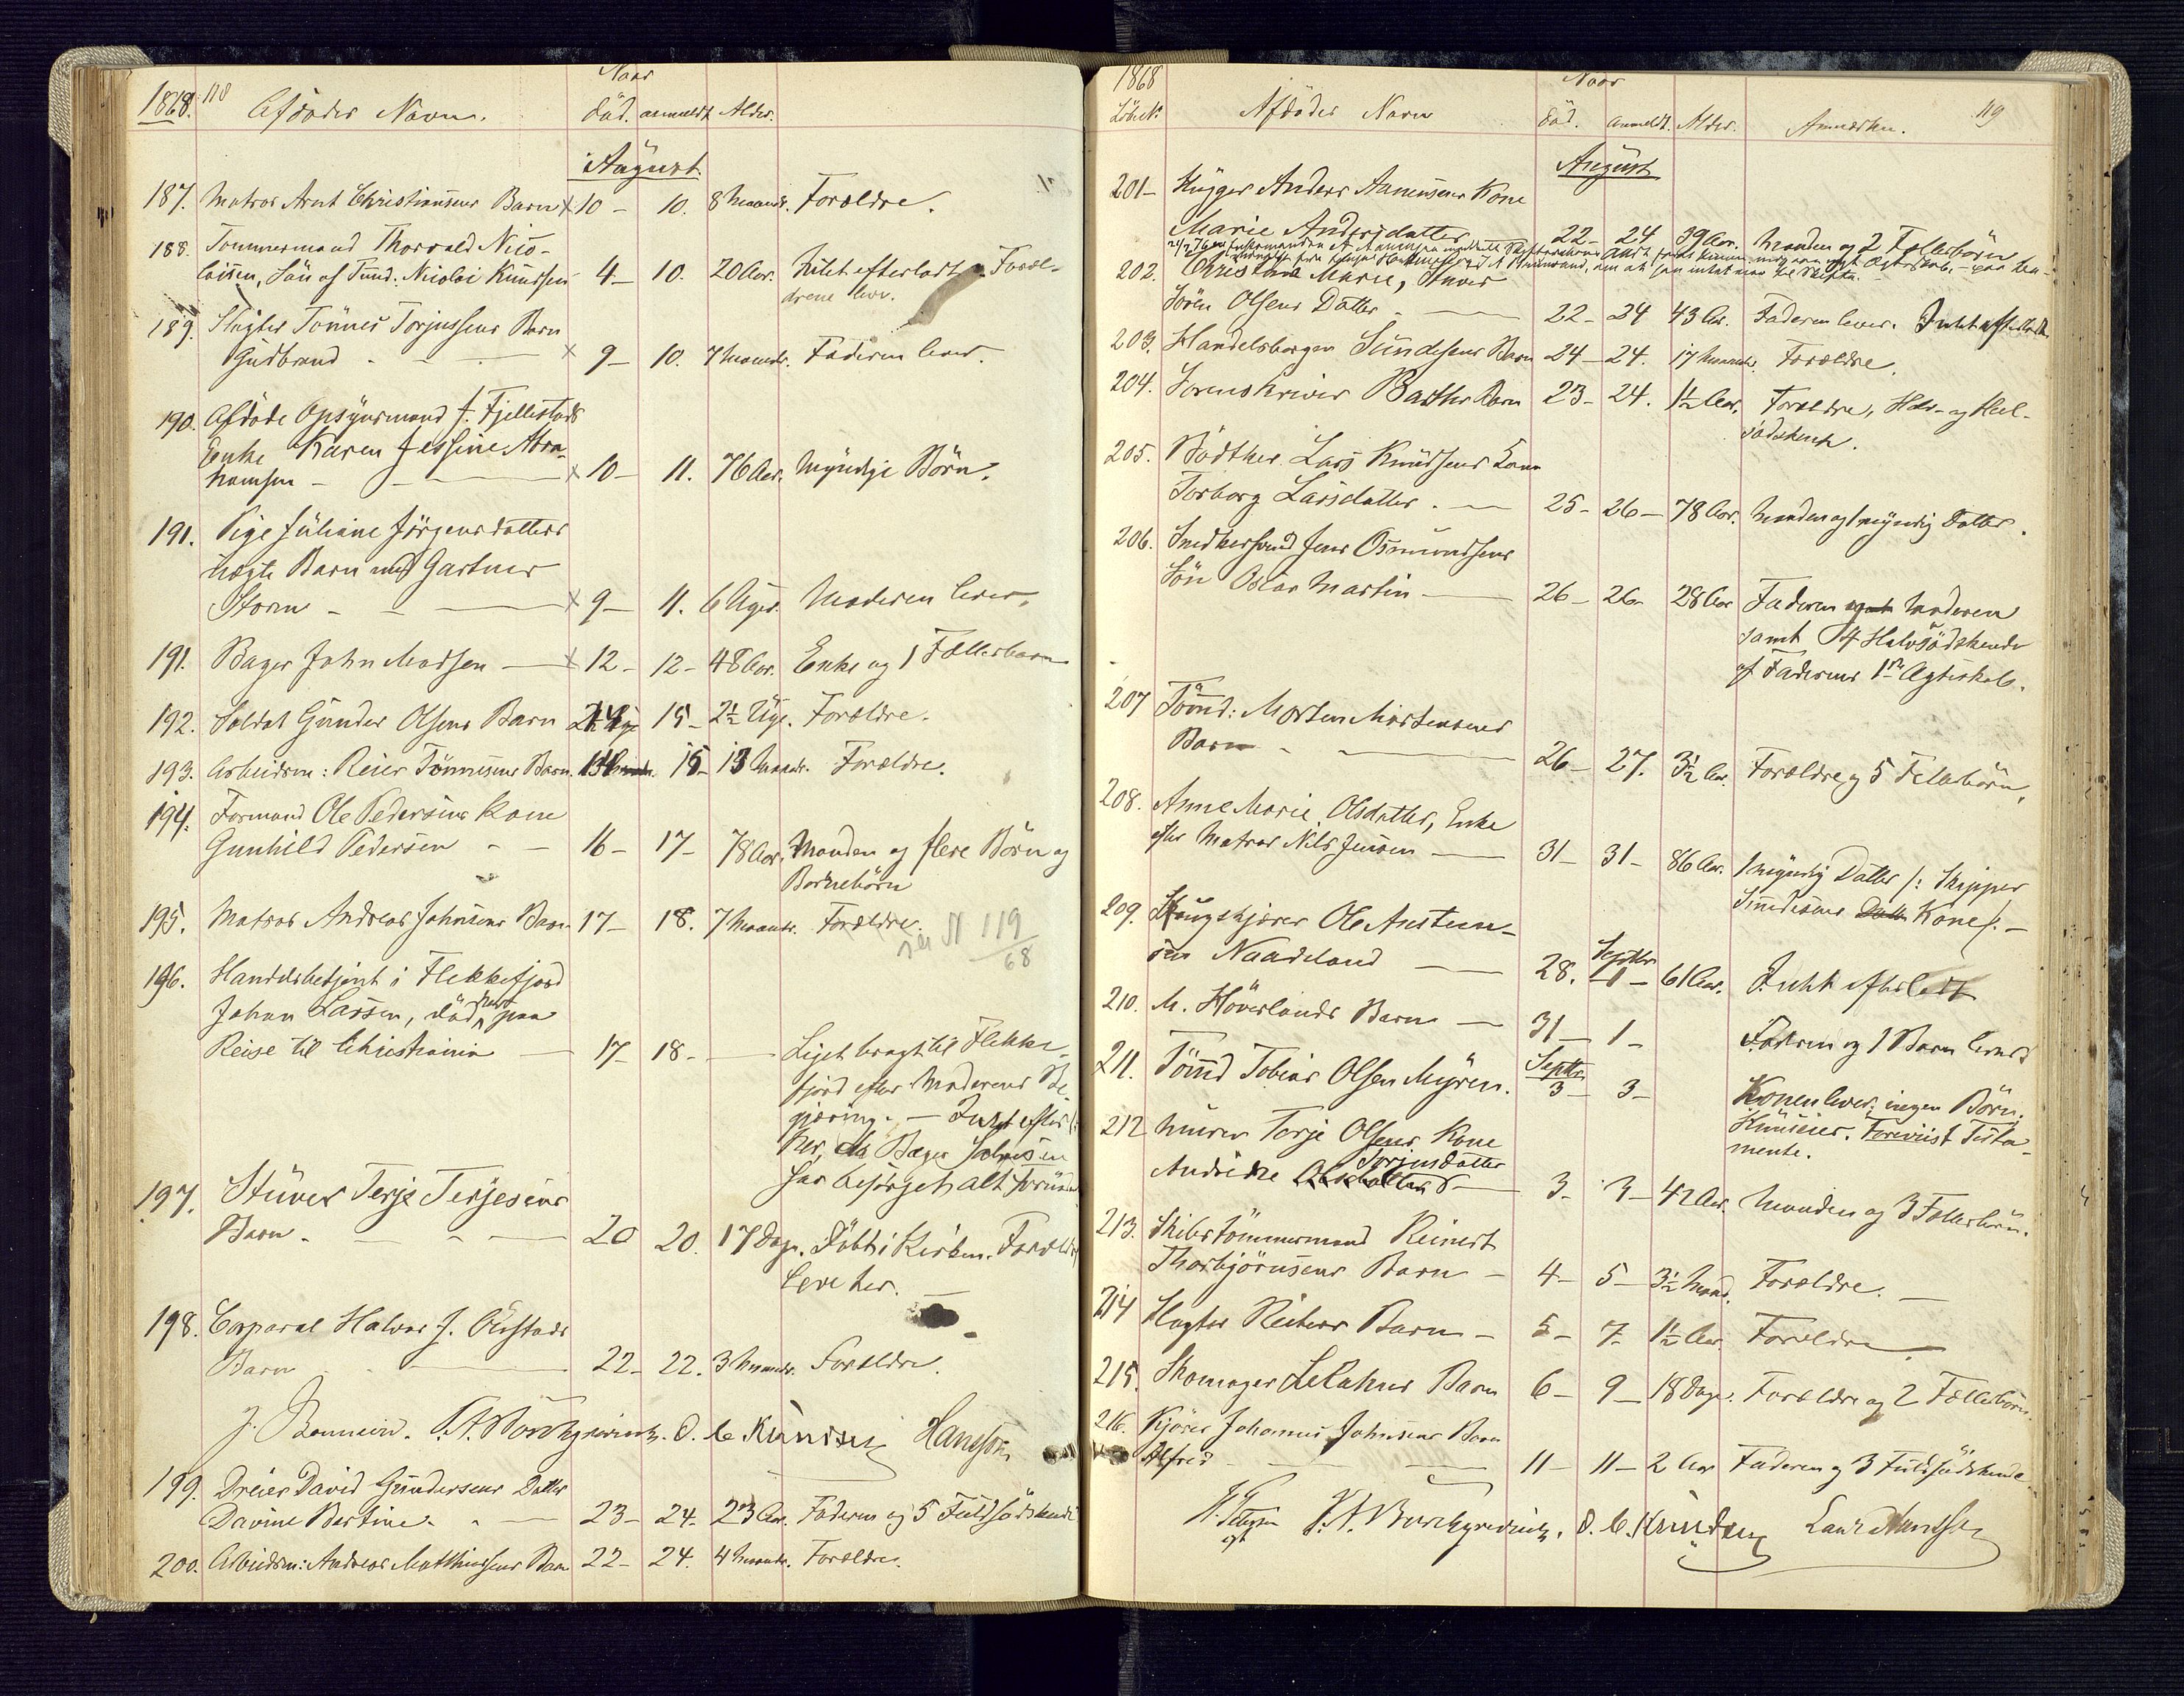 1868. 118 Afdødes Navn. Naar død. anmeldt Alder.
August
187. Matros Arnt Christiansens Barn x 10 - 10. 8 Maandr. Forældre.
188. Tømmermand Thorvald Nico-
laisen, Søn af Tmd. Nicolai Knudsen 4 - 10. 20 Aar. Intet efterladt. Foræl-
drene lever.
189. Slagter Tønnes Torjussens Barn
Gudbrand - x 9 - 10. 7 Maandr. Faderen lever.
190. Afdøde Opsynsmand J. Fjellestads
Enke Karen Jessine Abra-
hamsen - x 10 - 11. 76 Aar. Myndige Børn.
191. Pige Juliane Jørgensdatters
uægte Barn med Gartner
Storm - x 9 - 11. 6 Uger. Moderen lever.
191. Bager John Madsen - x 12 - 12 - 48 Aar. Enke og 1 Fællesbarn
192. Soldat Gunder Olsens Barn 15 - 2½ Uge. Forældre.
193. Arbeidsm: Reier Tønnesens Barn. 15 - 13 Maandr. Forældre.
194. Formand Ole Pedersens Kone
Gunhild Pedersen - 16 - 17 - 78 Aar. Manden og flere Børn og
Børnebørn
195. Matros Andreas Johnsens Barn 17 - 18. 7 Maandr. Forældre.
119
68
196. Handelsbetjent i Flekkefjord
Johan Lassen, død paa
Reise til Christiania - 17 - 18 - Liget bragt til Flekke-
fjord efter Moderens Be-
gjæring. - Intet efterl:
her, da Bager Johnsen
har besørget alt
197. Stuver Terje Terjesens
Barn - 20 20. 17 Dage. Døbt i Kirken. Forældre
leve her.
198. Corporal Halvor J. Øistads
Barn - 22 - 22. 3 Maandr. Forældre.
O. C. Knudsen Hansson
199. Dreier David Gundersens Datter
Davine Bertine - 23 - 24 - 23 Aar. Faderen og 5 Fuldsødskende
200. Arbeidsm: Andreas Matthiassens Barn 22 - 24. 4 Maandr. Forældre.
1868
Løbe № Afdødes Navn Naar død. anmeldt. Alder. Anmærkn. 119
August
201 - Anders Aanensens Kone
Marie Andersdatter 22 - 24 39 Aar. Manden og 2 Fællesbørn
202. Christine Marie, Stuver
Søren Olsens Datter - 22 - 24 43 Aar. Faderen lever. Intet efterladt
203. Handelsborger Sundesens Barn 24 - 24. 17 Maandr. Forældre.
204. Sorenskriver Barths Barn 23 - 24. 1½ Aar. Forældre, Hel-
sødskende.
205. Bødtker Lars Knudsens Kone
Torborg Larsdatter. - 25 - 26 - 78 Aar. Manden og 1 myndig Datter.
206. Snedkersvend Jens Osmundsens
Søn Oscar Martin - 26 - 26 - 28 Aar Faderen Moderen
samt 4 Halvsødskende
af Faderens 1ste Ægteskab.
207 Tømd: Morten Mortensens
Barn - 26 - 27. 3½ Aar. Forældre og 5 Fellesbørn.
208. Anne Marie Olsdatter, Enke
efter Matros Nils Jensen - 31 - 31 - 86 Aar. 1 myndig Datter /: Skipper
Simensens Datter Kone /. -
209. Ole Austen-
sen Naadeland - 28. Septbr 1 - 61 Aar. Intet efterladt
210. M. Høverlands Barn - 31 - 1 - Faderen og 1 Barn lever
211. Tømd Tobias Olsen Myren. Septbr 3 - 3 - Konen lever, ingen Børn.
Testa-
mente.
212 Murer Terje Olsens Kone
Torjusdatter
Andrea Olsdatter - 3 - 3 - 42 Aar. Manden og 3 Fællesbørn.
213. Skibstømmermand Reinert
Thorbjørnsens Barn - 4 - 5 - 3½ Maand. Forældre. -
214 Slagter Reiers Barn - 5 - 7 - 1½ Aar. Forældre.
215. Skomager Barn 6 - 9 - 18 Dage. Forældre og 2 Fællesbørn.
216. Kjører Johannes Johnsens Barn
Alfred - 11 - 11 - 2 Aar Faderen og 3 Fuldsødskende
O. C. Knudsen